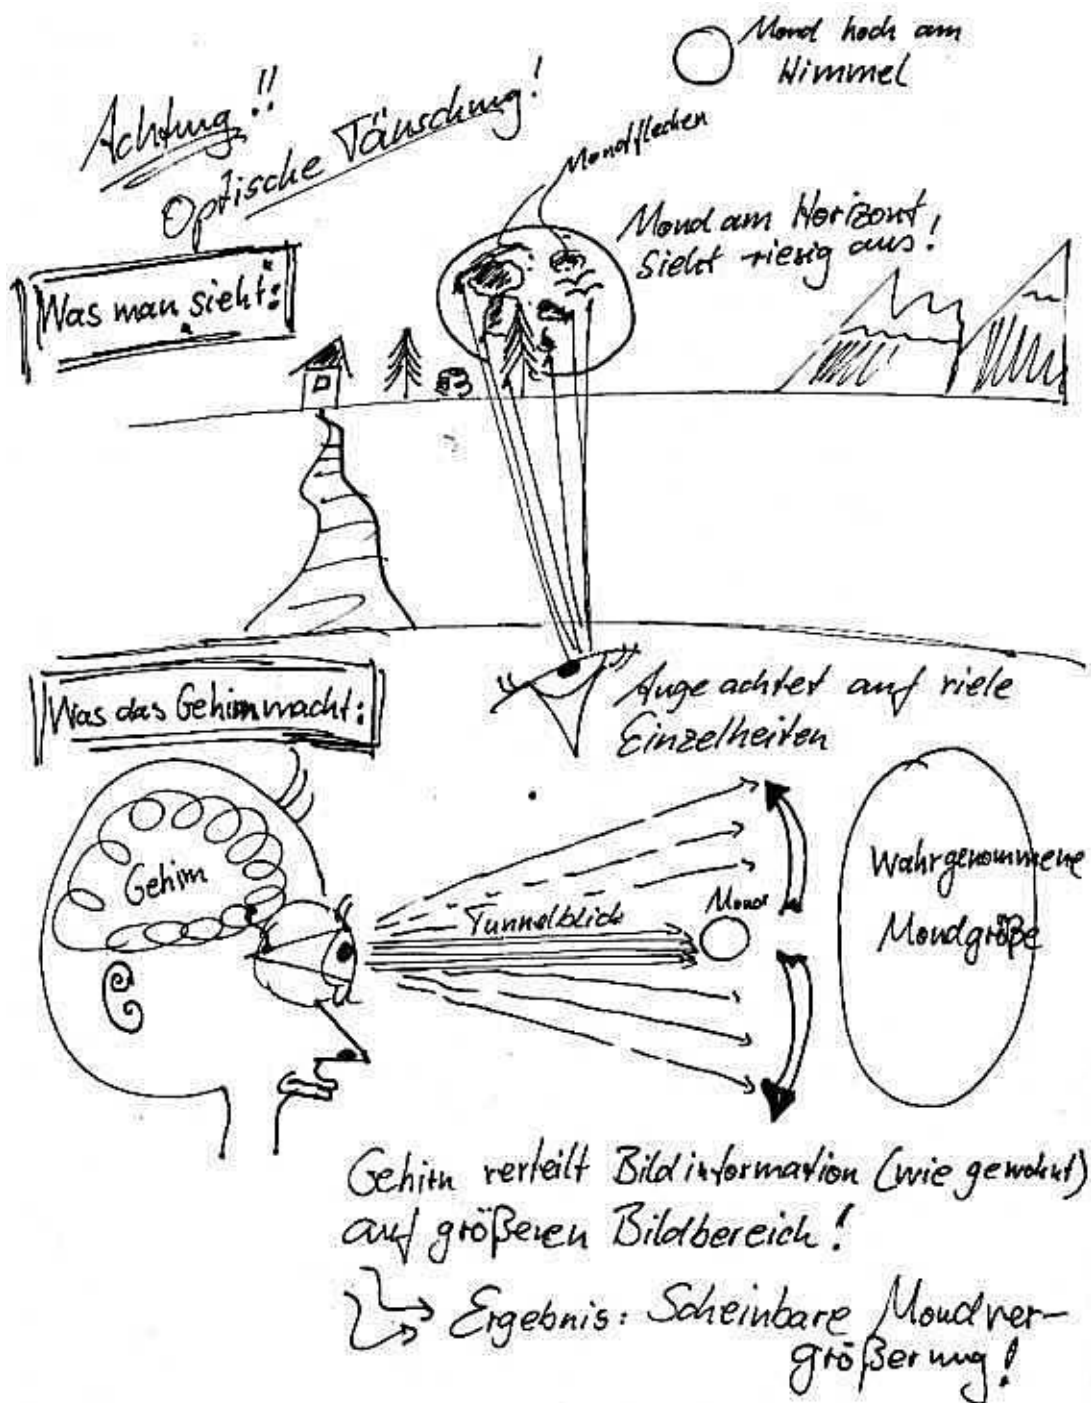 Mond hoch am
Himmel
Achtung!!
Optische Täuschung!
Mondflecken
Mond am Horizont
sieht riesig aus!
Was man sieht:
Was das Gehirn macht:
Auge achtet auf viele
Einzelheiten
Gehirn
Tunnelblick
Mond
Wahrgenommene
Mondgröße
Gehirn verteilt Bildinformation (wie gewohnt)
auf größeren Bildbereich!
Ergebnis: Scheinbare Mondver-
größerung!